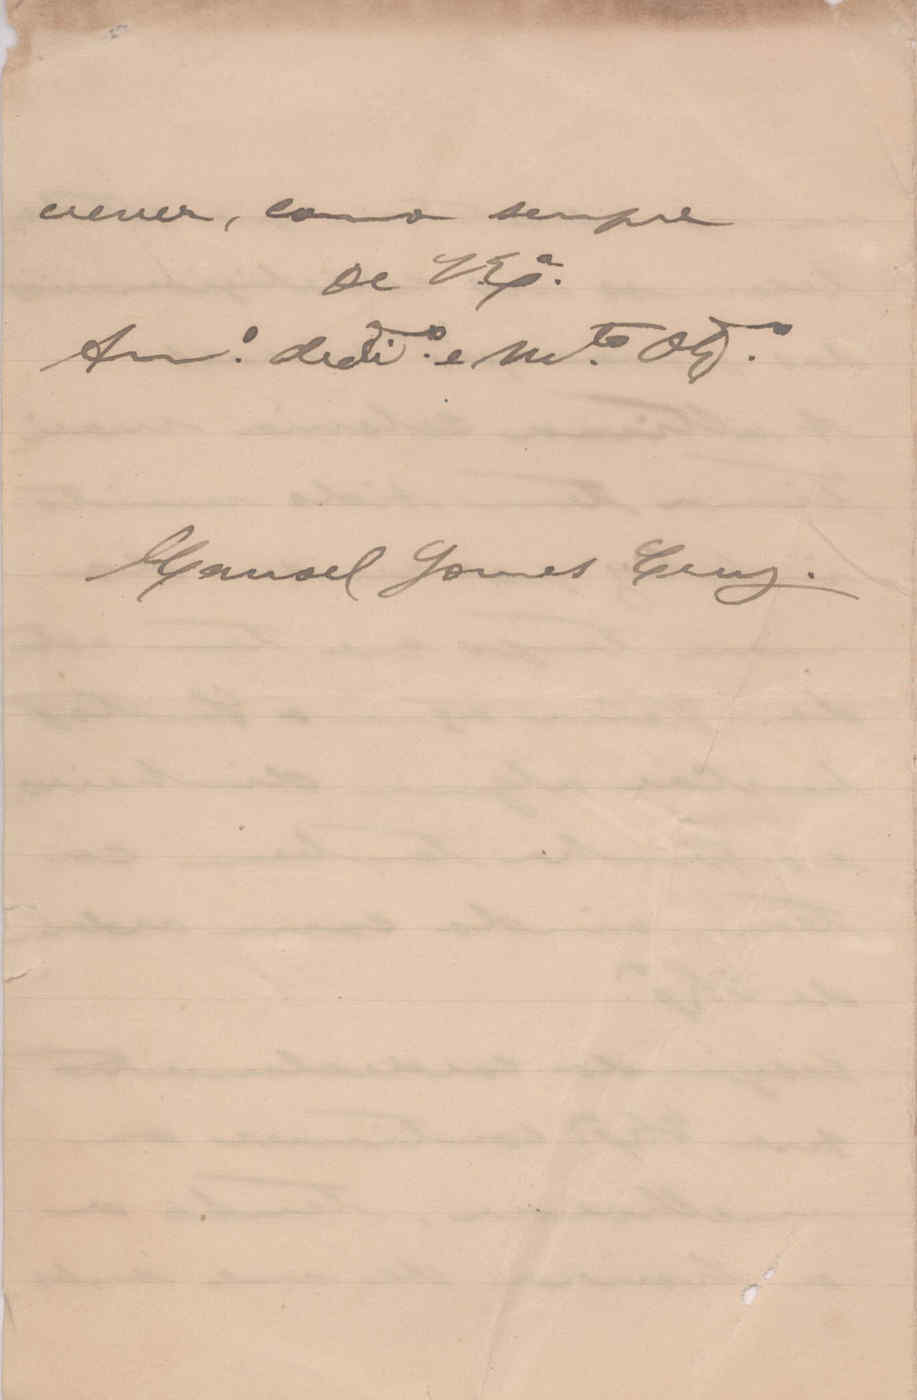 crever, como sempre
de V. Exª.
Amº. dedicº. e mtº. Obgº.
Manoel Gomes Cruz.